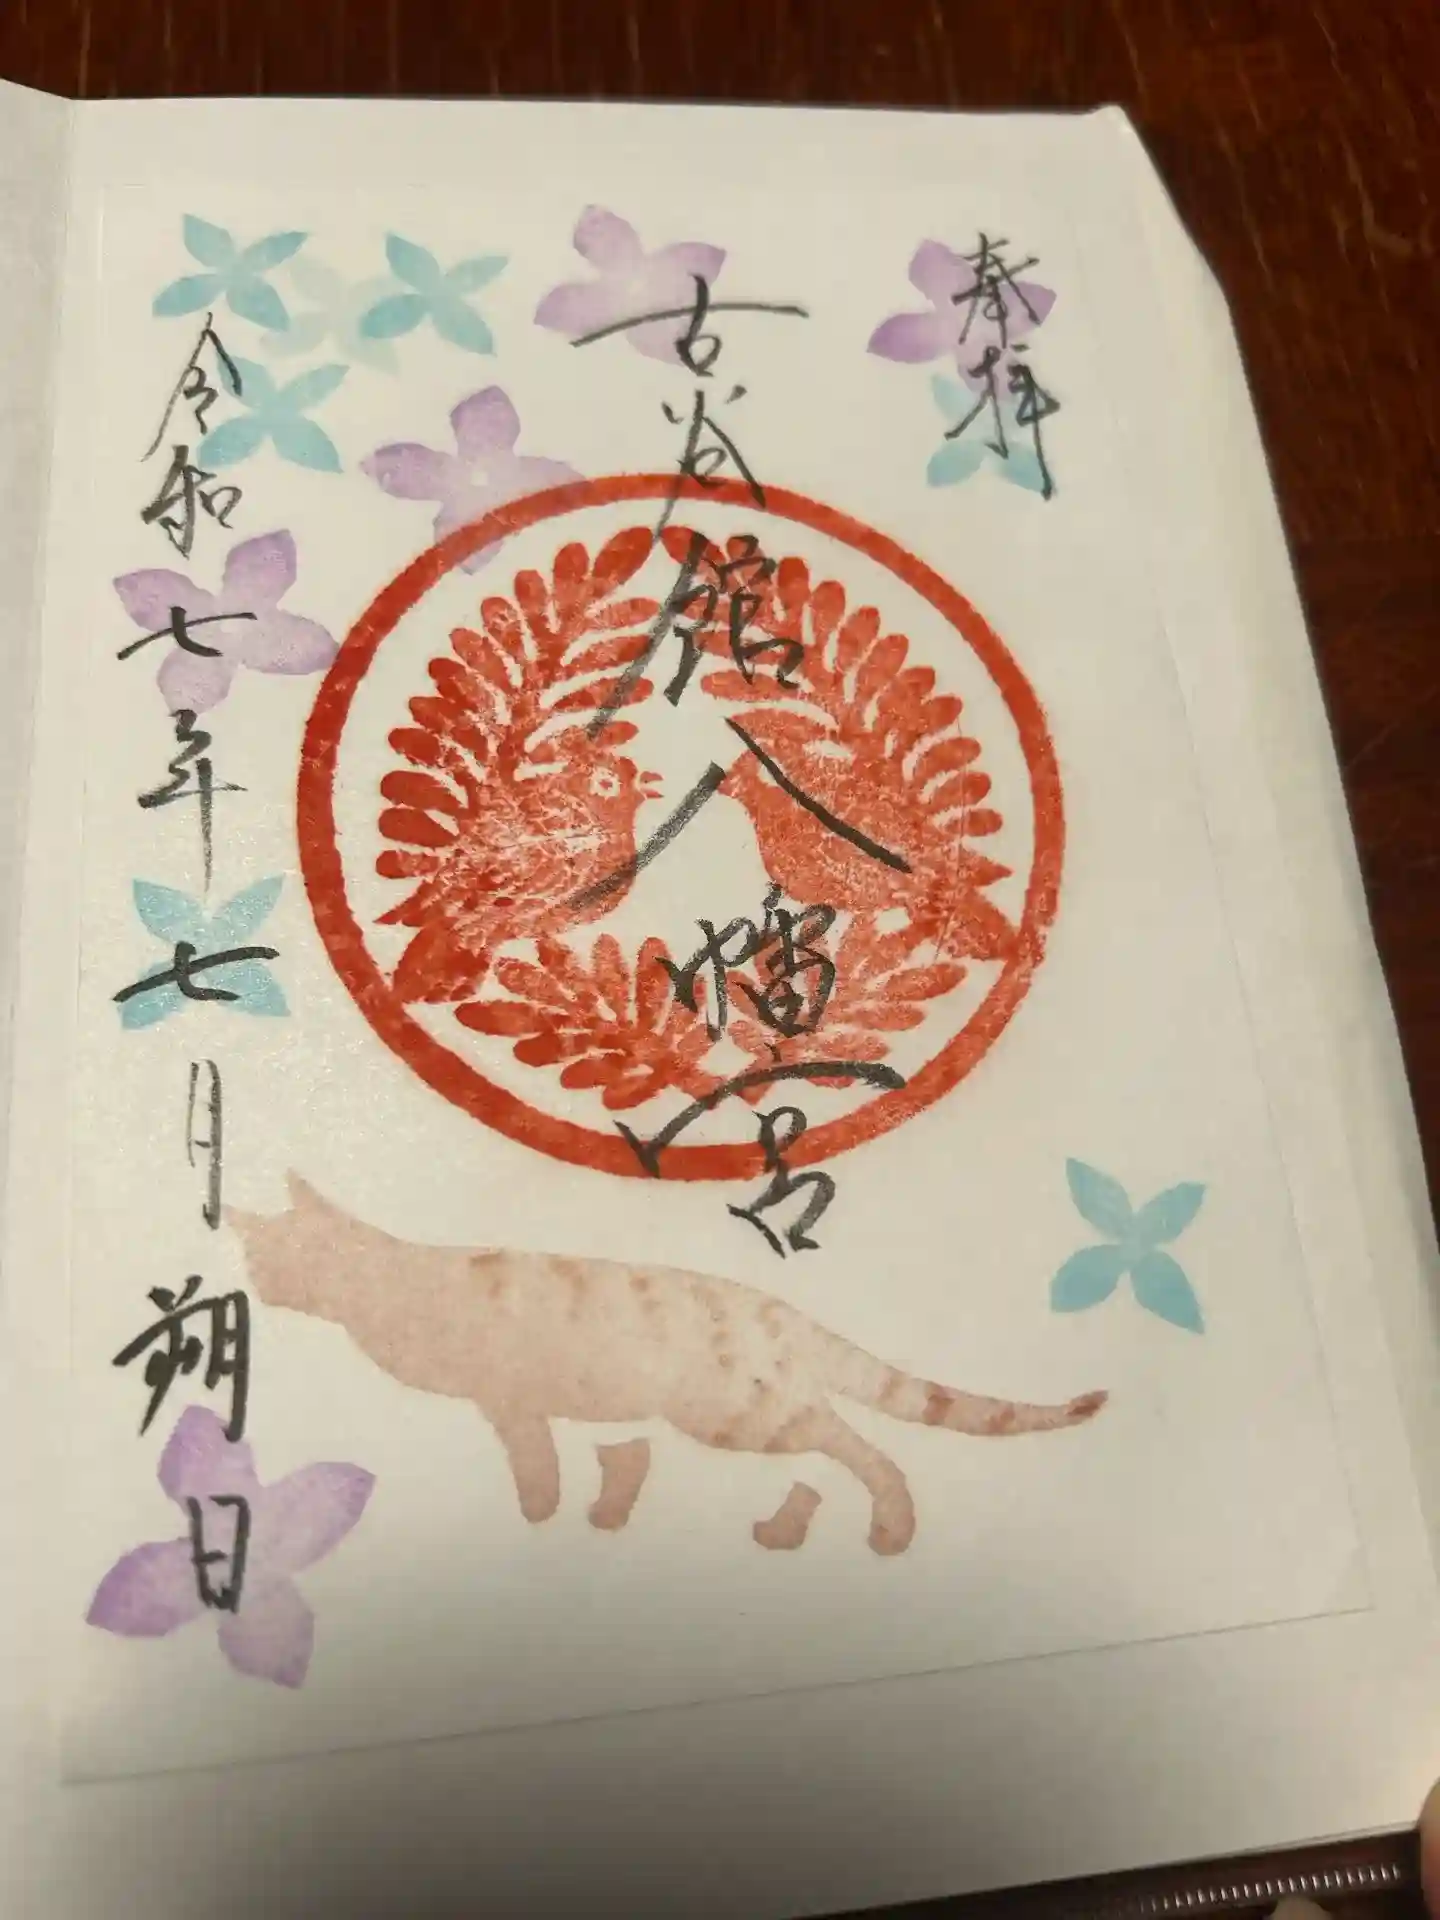 奉拝
古谷館八幡宮
令和七年七月朔日